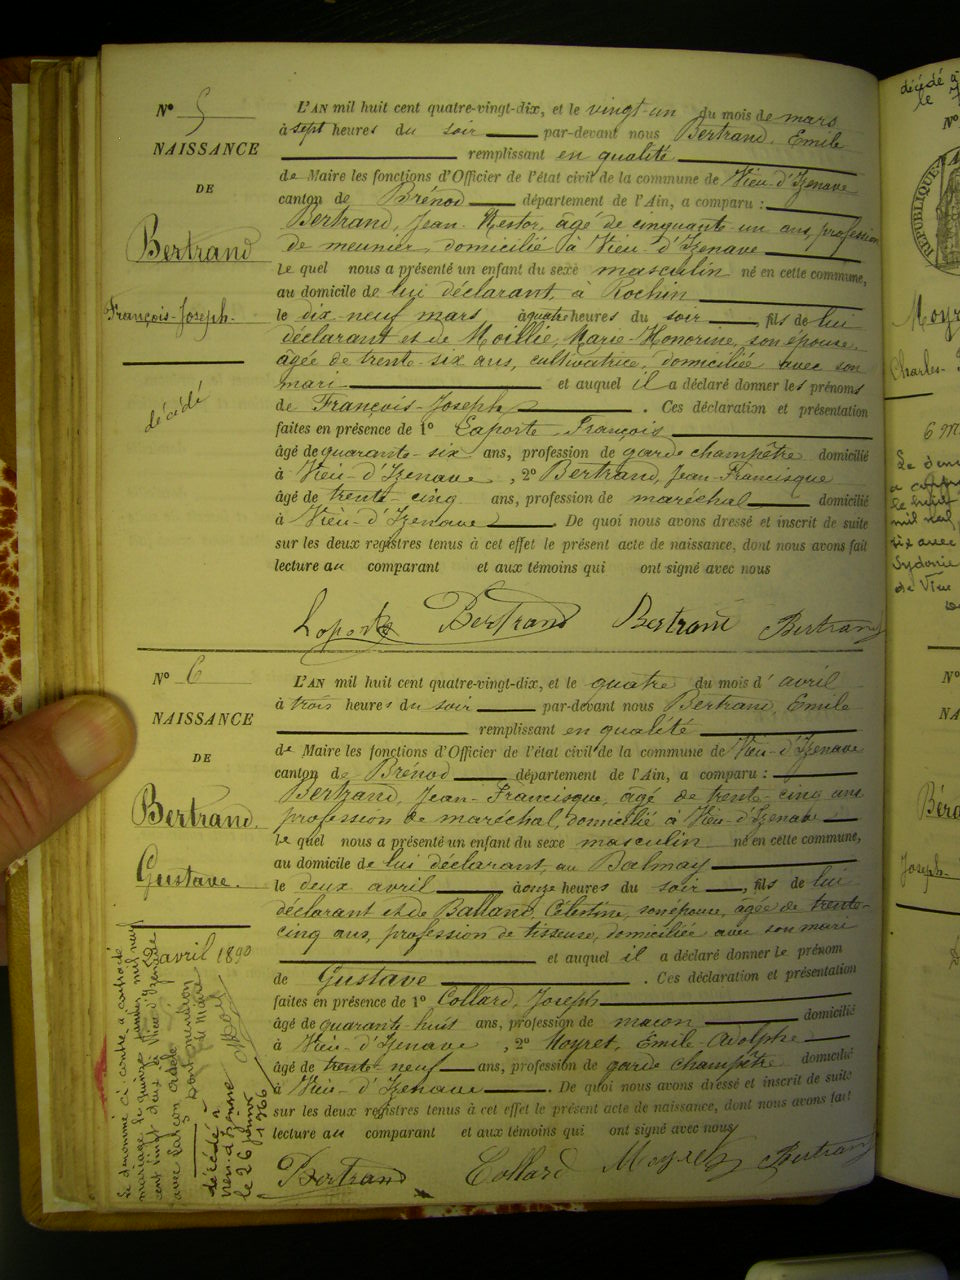 N° 5
NAISSANCE
DE
Bertrand
François-Joseph.
décédé
L'AN mil huit cent quatre-vingt-dix, et le vingt-un du mois de mars
à sept heures du soir par-devant nous Bertrand, Emile
remplissant en qualité
de Maire les fonctions d'Officier de l'état civil de la commune de Vieu-d'Izenave
canton de Brénod département de l'Ain, a comparu :
Bertrand, Jean Nestor, âgé de cinquante-un ans, profession
de meunier, domicilié à Vieu-d'Izenave
le quel nous a présenté un enfant du sexe masculin né en cette commune,
au domicile de lui déclarant, à Rochin
le dix-neuf mars à quatre heures du soir fils de lui
déclarant et de Moillié, Marie-Honorine, son épouse,
âgée de trente-six ans, cultivatrice, domiciliée avec son
mari et auquel il a déclaré donner les prénoms
de François-Joseph . Ces déclaration et présentation
faites en présence de 1° Laporte François
âgé de quarante-six ans, profession de garde champêtre domicilié
à Vieu-d'Izenave , 2° Bertrand, Jean-Francisque
âgé de trente-cinq ans, profession de maréchal domicilié
à Vieu-d'Izenave . De quoi nous avons dressé et inscrit de suite
sur les deux registres tenus à cet effet le présent acte de naissance, dont nous avons fait
lecture au comparant et aux témoins qui ont signé avec nous
Laporte Bertrand Bertrand Bertrand
N° 6
NAISSANCE
DE
Bertrand.
Gustave.
L'AN mil huit cent quatre-vingt-dix, et le quatre du mois d'avril
à trois heures du soir par-devant nous Bertrand, Emile
remplissant en qualité
de Maire les fonctions d'Officier de l'état civil de la commune de Vieu-d'Izenave
canton de Brénod département de l'Ain, a comparu :
Bertrand, Jean-Francisque, âgé de trente-cinq ans
profession de maréchal, domicilié à Vieu-d'Izenave
le quel nous a présenté un enfant du sexe masculin né en cette commune,
au domicile de lui déclarant, au Balmay
le deux avril à onze heures du soir , fils de lui
déclarant et de Balland, Célestine, son épouse, âgée de trente-
cinq ans, profession de tisseuse, domiciliée avec son mari
et auquel il a déclaré donner le prénom
de Gustave . Ces déclaration et présentation
faites en présence de 1° Collard, Joseph
âgé de quarante-huit ans, profession de maçon domicilié
à Vieu-d'Izenave , 2° Moyret, Emile-Adolphe
âgé de trente-neuf ans, profession de garde champêtre domicilié
à Vieu-d'Izenave . De quoi nous avons dressé et inscrit de suite
sur les deux registres tenus à cet effet le présent acte de naissance, dont nous avons fait
lecture au comparant et aux témoins qui ont signé avec nous
Bertrand Collard Moyret Bertrand
avril 1890
Le dénommé ci-contre a contracté
mariage le quinze mil neuf
cent vingt deux à Vieu d'Izenave
avec
Dont mention
le Maire
décédé à
Vieu d'Izenave
le 26
1966
décédé à
le
N°
RÉPUBLIQUE
Charles-
mil neuf
six avec
Sydonie
de Vieu
N°
NA
Joseph-